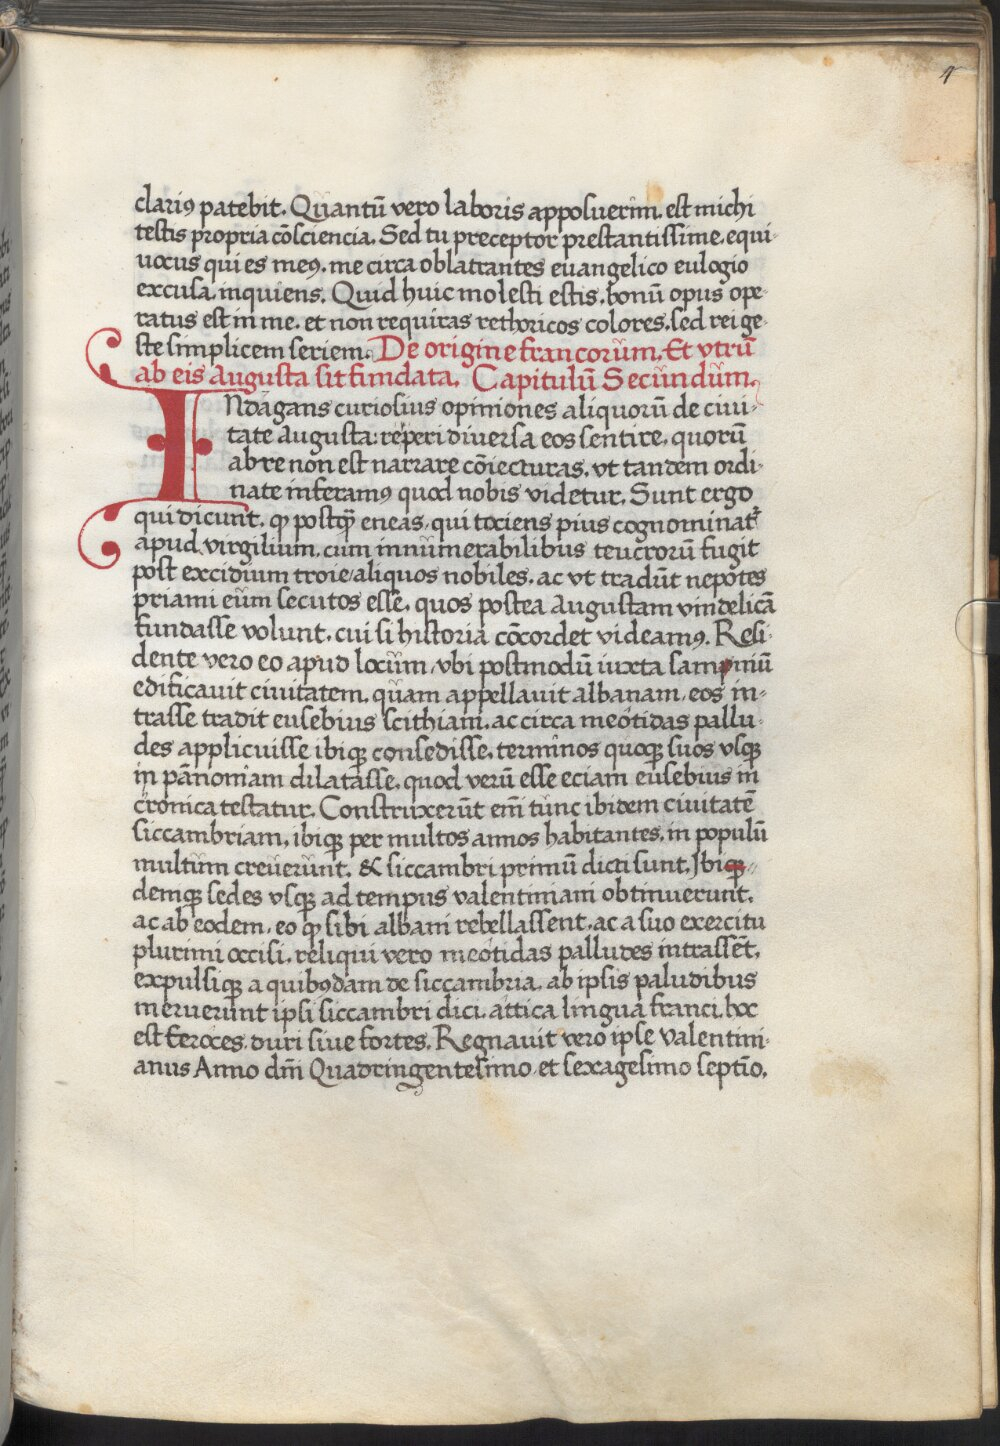 4
clariꝰ patebit. Quantū vero laboris apposuerim. est michi
testis propria cōsciencia. Sed tu preceptor prestantissime. equi-
uocus qui es meꝰ. me circa oblatrantes euangelico eulogio
excusa. inquiens. Quid huic molesti estis. bonū opus ope-
ratus est in me. et non requiras rethoricos colores. sed rei ge-
ste simplicem seriem. De origine francorum. Et vtrū
ab eis augusta sit fundata. Capitulū Secundum.
INdagans curiosius opiniones aliquorū de ciui-
tate augusta: reperi diuersa eos sentire. quorū
ab re non est narrare cōiecturas. vt tandem ordi-
nate inferamꝰ quod nobis videtur. Sunt ergo
qui dicunt. ꝙ postꝙ̄ eneas. qui tociens pius cognominat᷑
apud virgilium. cum innumerabilibus teucrorū fugit
post excidium troie/ aliquos nobiles. ac vt tradūt nepotes
priami eum secutos esse. quos postea augustam vindelicā
fundasse volunt. cui si historia cōcordet videamꝰ. Resi-
dente vero eo apud locum/ vbi postmodū iuxta sampniū
edificauit ciuitatem. quam appellauit albanam. eos in-
trasse tradit eusebius scithiam. ac circa meotidas pallu-
des applicuisse ibiqꝫ consedisse. terminos quoqꝫ suos vsqꝫ
in pānoniam dilatasse. quod verū esse eciam eusebius in
cronica testatur. Construxerūt em̄ tunc ibidem ciuitatē
siccambriam. ibiqꝫ per multos annos habitantes. in populū
multum creuerunt. & siccambri primū dicti sunt. Ibiqꝫ
demqꝫ sedes vsqꝫ ad tempus valentiniani obtinuerunt.
ac ab eodem. eo ꝙ sibi albani rebellassent. ac a suo exercitu
plurimi occisi. reliqui vero meotidas palludes intrassēt.
expulsiqꝫ a quibꝰdam de siccambria. ab ipsis paludibus
meruerunt ipsi siccambri dici. attica lingua franci. hoc
est feroces. duri siue fortes. Regnauit vero ipse valentini-
anus Anno dn̄i Quadringentesimo. et sexagesimo septīo.